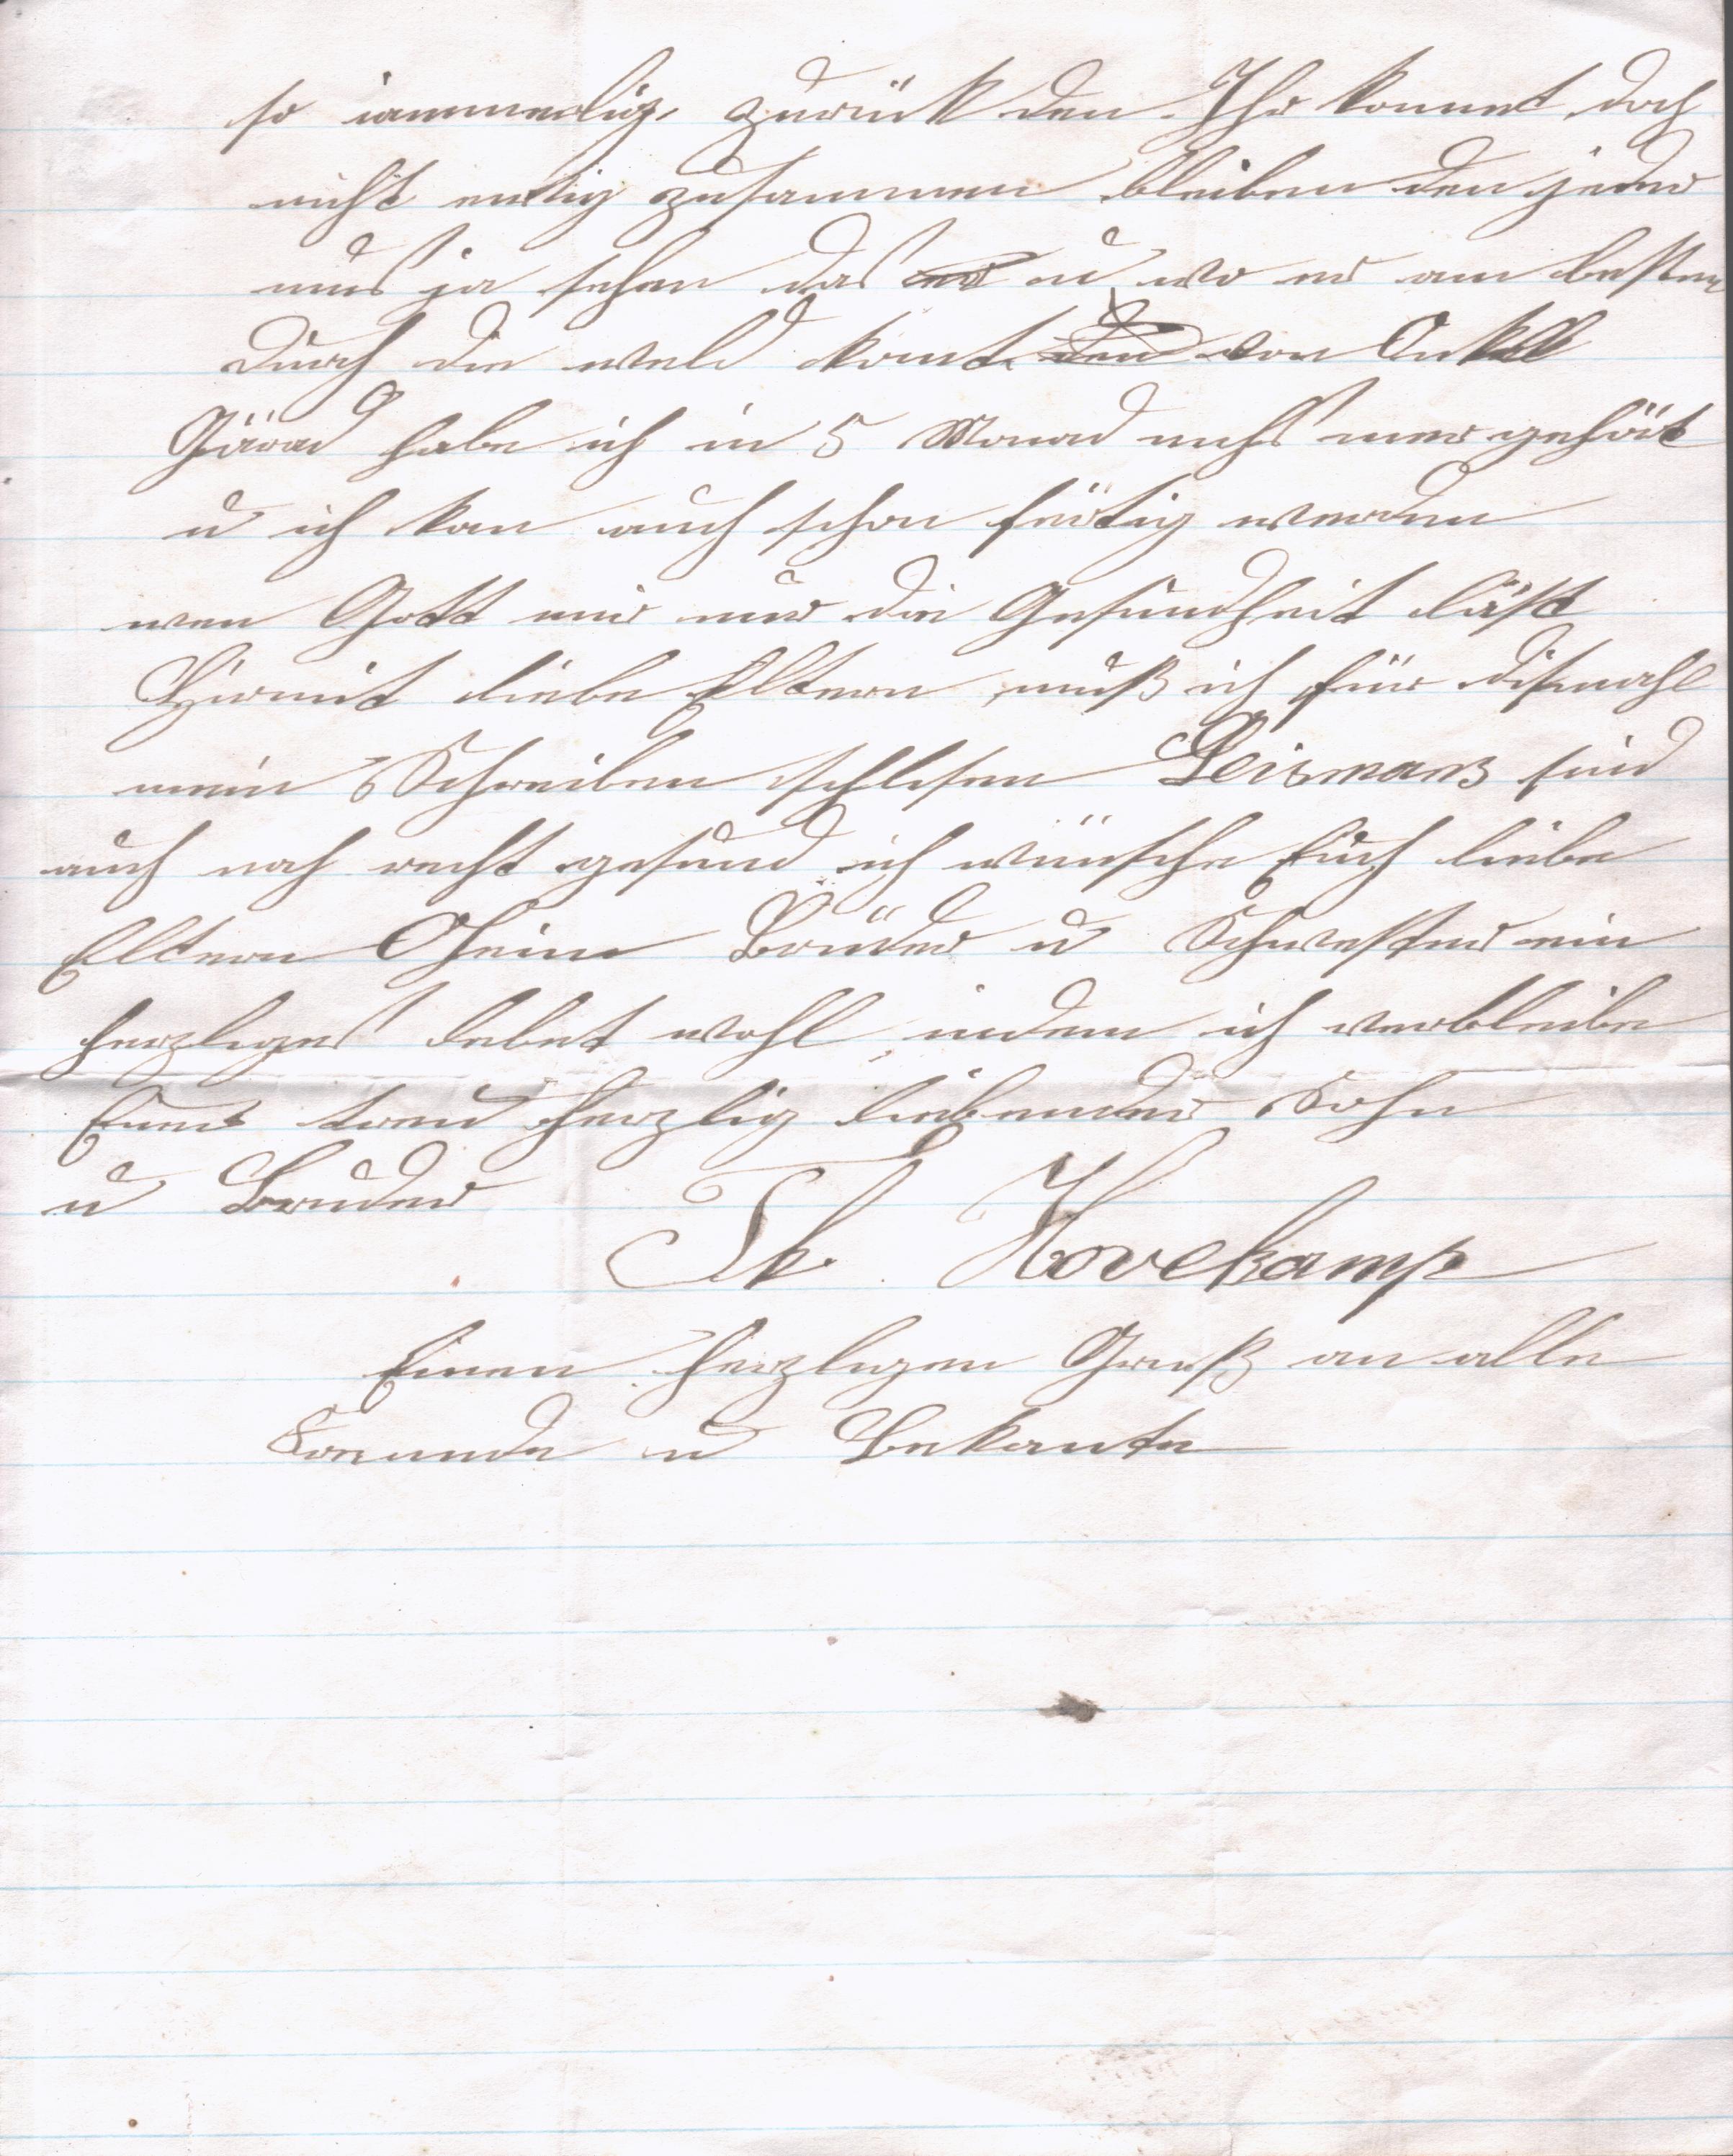 so jammerlig, zurük den Ihr konnet doch
nicht ewig zusammen bleiben den jeder
mus ja sehen das u wo er am besten
durch die weld komt von Onkell
Gärad habe ich in 5 Monad nichs mer gehört
u ich kan auch schon färtig werden
wen Gott mir nur die Gesundheit läßt
Hirmit liebe Eltern muß ich für dismahl
mein Schreiben schlisen Leismans sind
auch noch recht gesund ich wünsche Euch liebe
Eltern Oheim Brüder u Schwester ein
herzliges lebet wohl indem ich verbleibe
Euer treu herzlig liebender Sohn
u Bruder Th. Hovekamp
Einen herzligen Gruß an alle
Freunde u Bekante